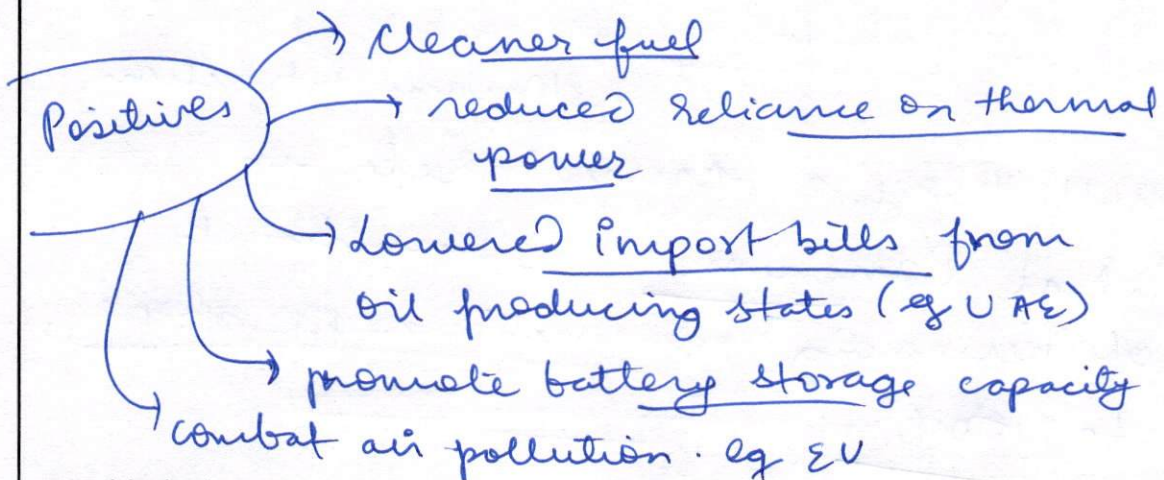 Positives
cleaner fuel
reduced reliance on thermal
power
Lowered import bills from
oil producing states (eg UAE)
promote battery storage capacity
combat air pollution. eg EV